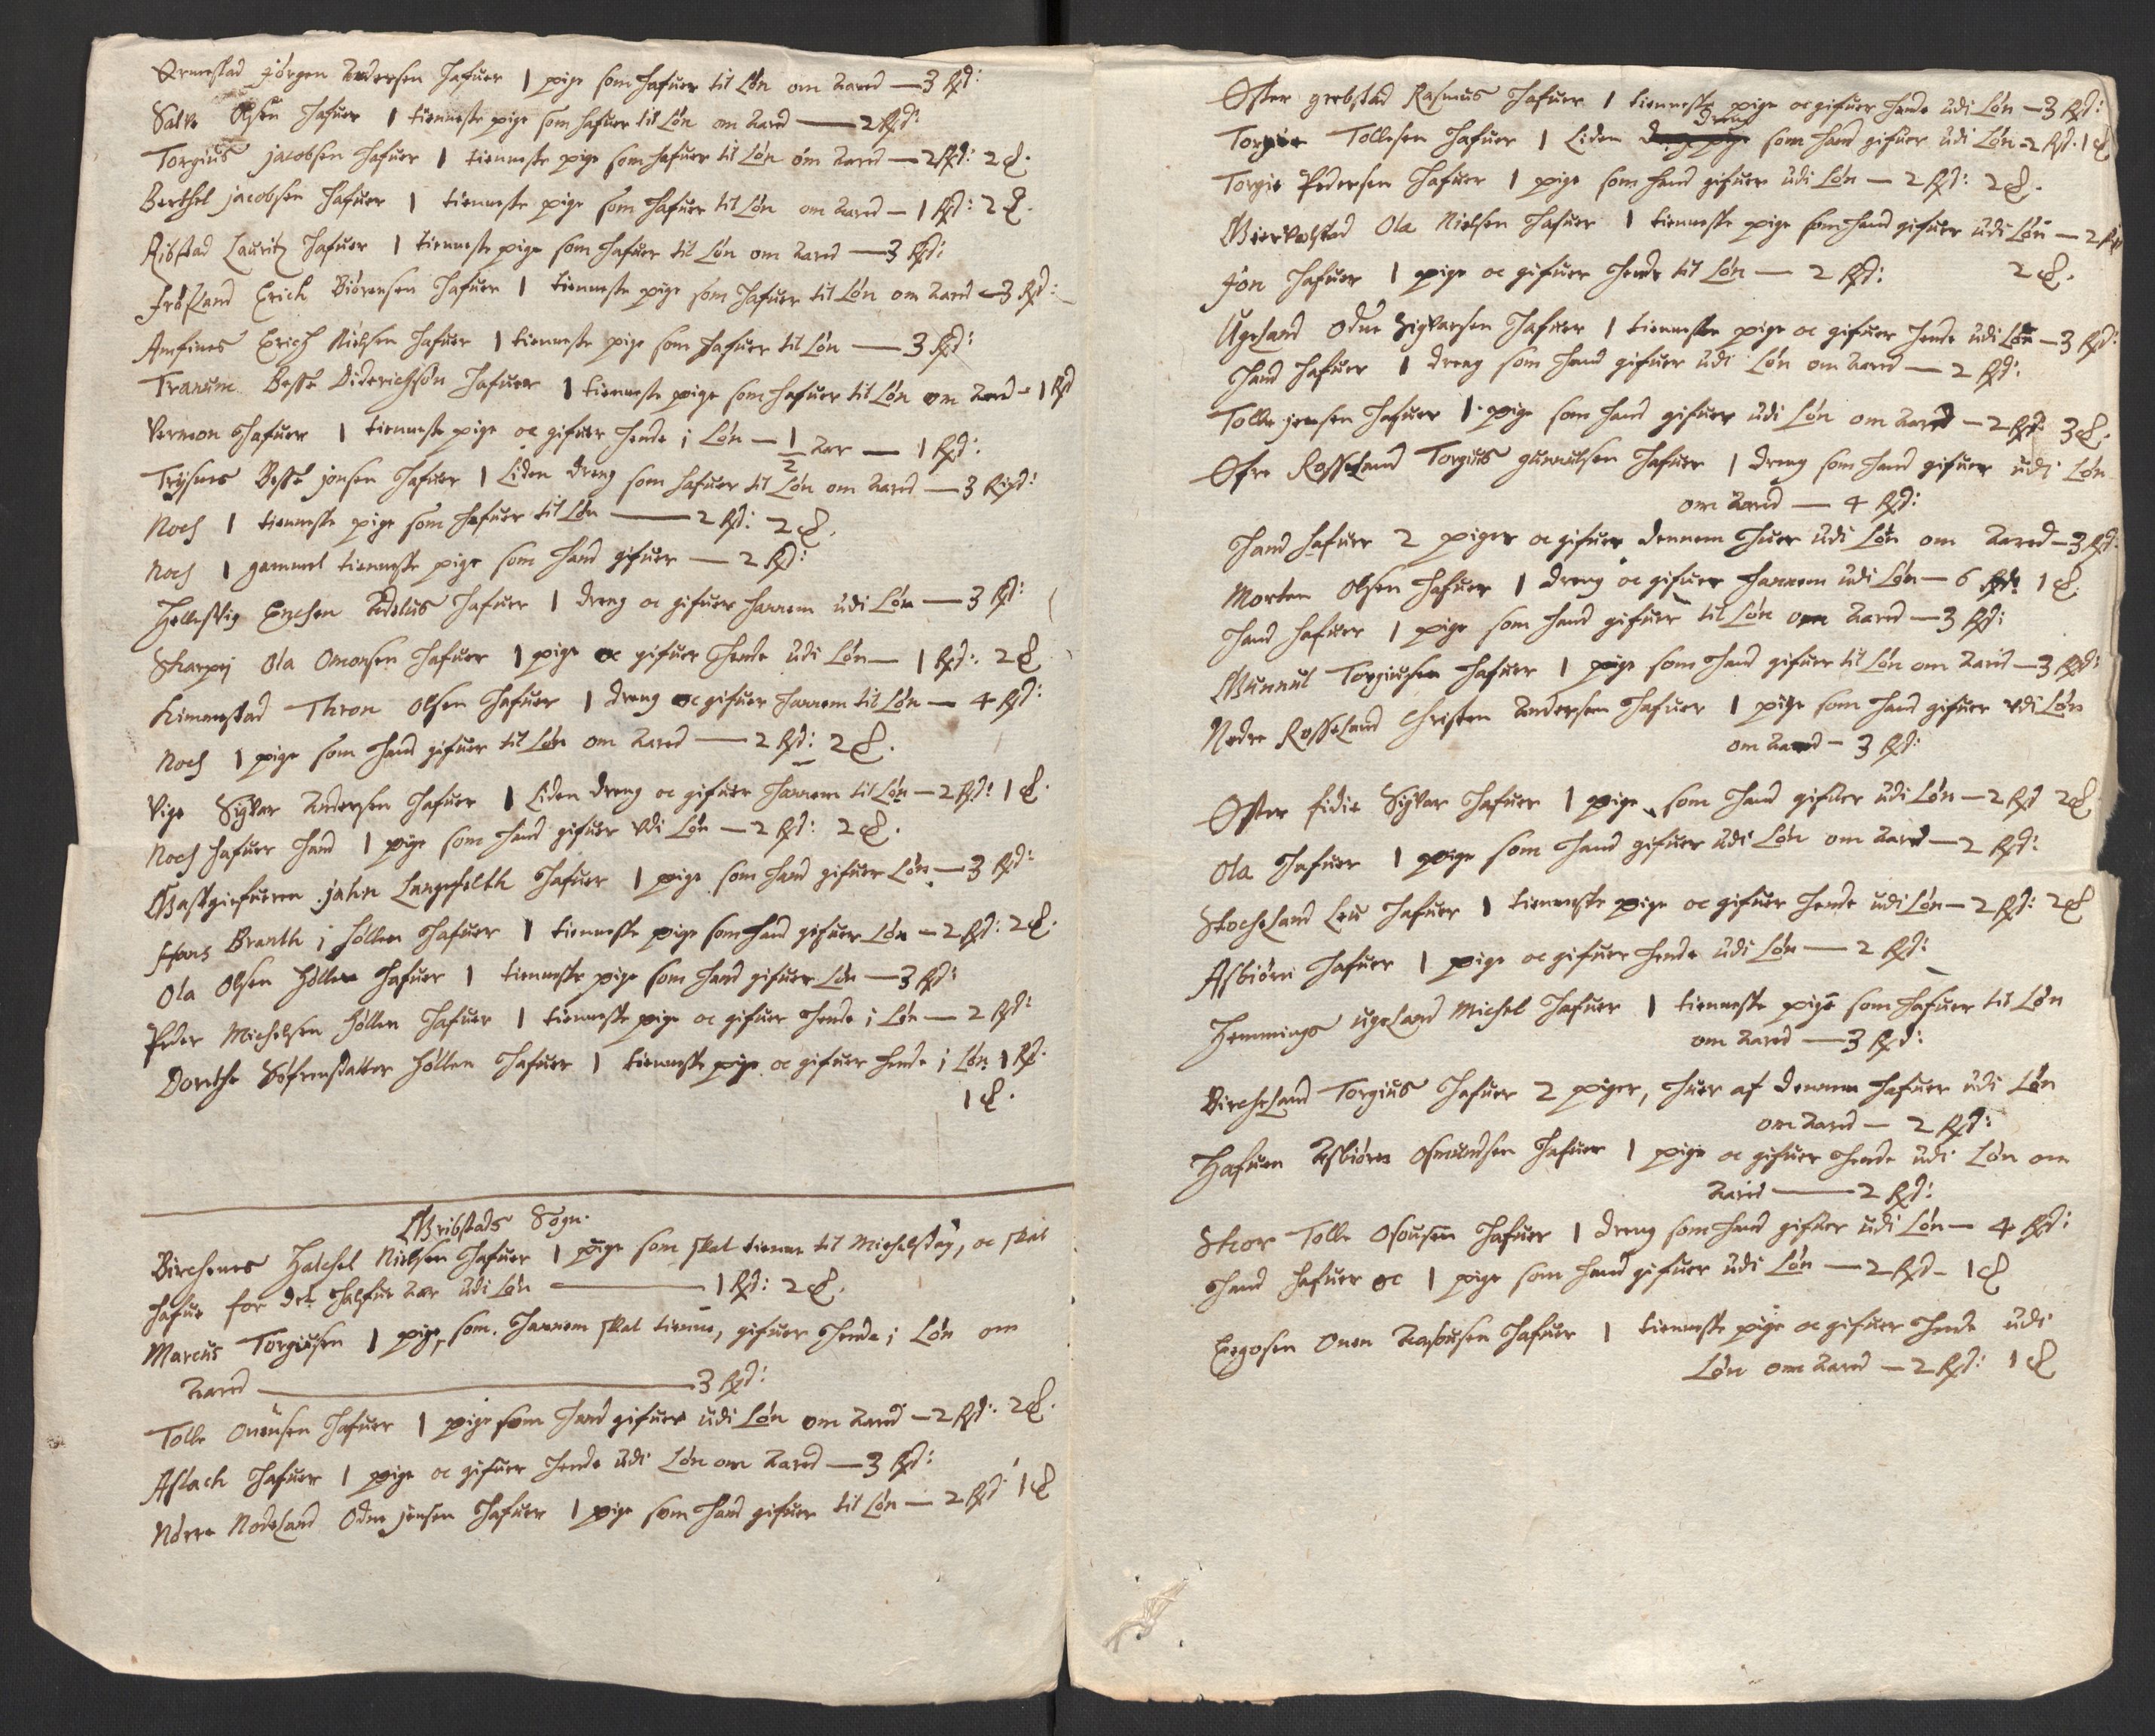 Ormestad Jörgen Andersen hafuer 1 pige som hafuer til Lön om Aared — 3 Rd:
Salve Olsen hafuer 1 tienneste pige som hafuer til Lön om Aared — 2 Rd:
Torgius jacobsen hafuer 1 tienneste pige som hafuer til Lön om Aared — 2 Rd: 2 ß.
Berthel jacobsen hafuer 1 tienneste pige som hafuer til Lön om Aared — 1 Rd: 2 ß.
Ribstad Lauritz hafuer 1 tienneste pige som hafuer til Lön om Aared — 3 Rd:
Frösland Erich Biörensen hafuer 1 tienneste pige som hafuer til Lön om Aared — 3 Rd:
Amfines Erich Nielsen hafuer 1 tienneste pige som hafuer til Lön — 3 Rd:
Tranum Besse Diderichsön hafuer 1 tienneste pige som hafuer til Lön om Aared — 1 Rd
Vermon hafuer 1 tienneste pige oc gifuer hende i Lön — 1/2 Aar — 1 Rd:
Trysnes Besse jonsen hafuer 1 Liden dreng som hafuer til Lön om Aared — 3 Rixd:
Noch 1 tienneste pige som hafuer til Lön — 2 Rd: 2 ß.
Noch 1 gammel tienneste pige som hand gifuer — 2 Rd:
Hellessvig Enchen Adelus hafuer 1 dreng oc gifuer hannem udi Lön — 3 Rd:
Skarpei Ola Omonsen hafuer 1 pige oc gifuer hende udi Lön — 1 Rd: 2 ß
Kimmestad Thron Olsen hafuer 1 dreng oc gifuer hannem til Lön — 4 Rd:
Noch 1 pige som hand gifuer til Lön om Aared — 2 Rd: 2 ß.
Vige Sigvar Andersen hafuer 1 Liden dreng oc gifuer hannem til Lön — 2 Rd: 1 ß.
Noch hafuer hand 1 pige som hand gifuer vdi Lön — 2 Rd: 2 ß.
Gastgiefueren jahn Langefelth hafuer 1 pige som hand gifuer Lön — 3 Rd:
Hans Branth i höllen hafuer 1 tienneste pige som hand gifuer Lön — 2 Rd: 2 ß.
Ola Olsen Höllen hafuer 1 tienneste pige som hand gifuer Lön — 3 Rd:
Peder Michelsen höllen hafuer 1 tienneste pige oc gifuer hende i Lön — 2 Rd:
Dorethe Söfrensdatter Höllen hafuer 1 tienneste pige oc gifuer hende i Lön 1 Rd.
1 ß.
Gribstads Sogn.
Birchenes Halchel Nielsen hafuer 1 pige som skal tienne til Michelsdag, oc skal
hafue for det halfue Aar udi Lön — 1 Rd: 2 ß.
Marcus Torgiusen 1 pige, som hannem skal tienne, gifuer hende i Lön om
Aared — 3 Rd:
Tolle Onensen hafuer 1 pige som hand gifuer udi Lön om Aared — 2 Rd: 2 ß.
Aslach hafuer 1 pige oc gifuer hende udi Lön om Aared — 3 Rd:
Nörre Nodeland Odne jensen hafuer 1 pige som hand gifuer til Lön — 2 Rd 1 ß
Öster grebstad Rasmus hafuer 1 tienneste pige oc gifuer hende udi Lön — 3 Rd:
Torgie Tollesen hafuer 1 Liden dreng som hand gifuer udi Lön — 2 Rd. 1 ß
Torgie Pedersen hafuer 1 pige som hand gifuer udi Lön — 2 Rd: 2 ß.
Giervolstad Ola Nielsen hafuer 1 tienneste pige som hand gifuer udi Lön — 2 Rd
2 ß.
Jon hafuer 1 pige oc gifuer hende til Lön — 2 Rd:
Ugeland Odne Sigvarsen hafuer 1 tienneste pige oc gifuer hende udi Lön — 3 Rd:
Hand hafuer 1 dreng som hand gifuer udi Lön om Aared — 2 Rd:
Tolle jensen hafuer 1 pige som hand gifuer udi Lön om Aared — 2 Rd: 3 ß.
Öfre Rosseland Torgius gunnulsen hafuer 1 dreng som hand gifuer udi Lön
om Aared — 4 Rd:
Hand hafuer 2 piger oc gifuer dennem huer udi Lön om Aared — 3 Rd:
Morten Olsen hafuer 1 dreng oc gifuer hannem udi Lön — 6 Rd: 1 ß.
Hand hafuer 1 pige som hand gifuer til Lön om Aared — 3 Rd:
Gunnul Torgiusen hafuer 1 pige som hand gifuer til Lön om Aared — 3 Rd:
Nedre Rosseland Christen Andersen hafuer 1 pige som hand gifuer vdi Lön
om Aared — 3 Rd:
Öster fidie Sigvar hafuer 1 pige som hand gifuer udi Lön — 2 Rd 2 ß
Ola hafuer 1 pige som hand gifuer udi Lön om Aared — 2 Rd:
Stocheland Leu hafuer 1 tienneste pige oc gifuer hende udi Lön — 2 Rd: 2 ß
Asbiörn hafuer 1 pige oc gifuer hende udi Lön — 2 Rd:
Hemmings ugeland Michel hafuer 1 tienneste pige som hafuer til Lön
om Aared — 3 Rd:
Bircheland Torgius hafuer 2 piger, huer af dennem hafuer udi Lön
om Aared — 2 Rd:
Hafuen Asbiörn Osmundsen hafuer 1 pige oc gifuer hende udi Lön om
Aared — 2 Rd:
Skor Tolle Osousen hafuer 1 dreng som hand gifuer udi Lön — 4 Rd:
Hand hafuer oc 1 pige som hand gifuer udi Lön — 2 Rd — 1 ß
Onen hafuer 1 tienneste pige oc gifuer hende udi
Lön om Aared — 2 Rd: 1 ß